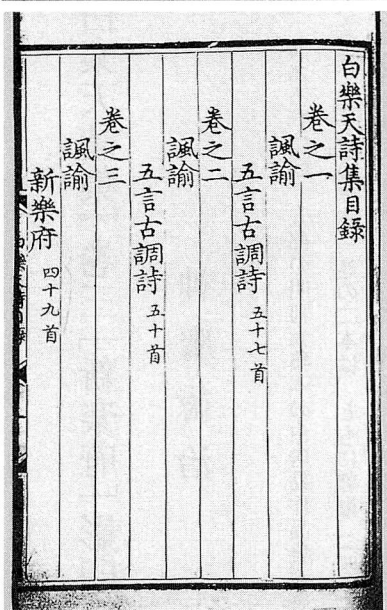 白樂天詩集目錄
卷之一
諷諭
五言古調詩 五十七首
卷之二
諷諭
五言古調詩 五十首
卷之三
諷諭
新樂府 四十九首